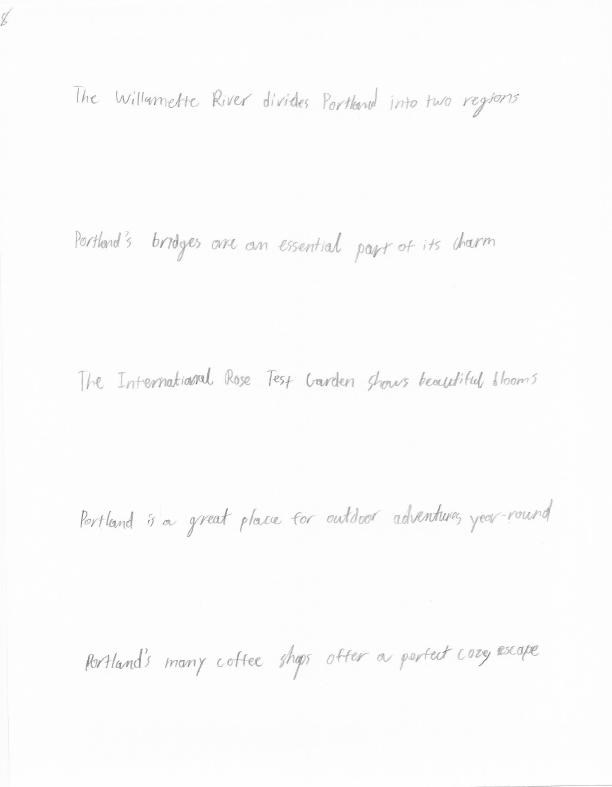 8
The Willamette River divides Portland into two regions
Portland's bridges are an essential part of its charm
The International Rose Test Garden shows beautiful blooms
Portland is a great place for outdoor adventures year-round
Portland's many coffee shops offer a perfect cozy escape